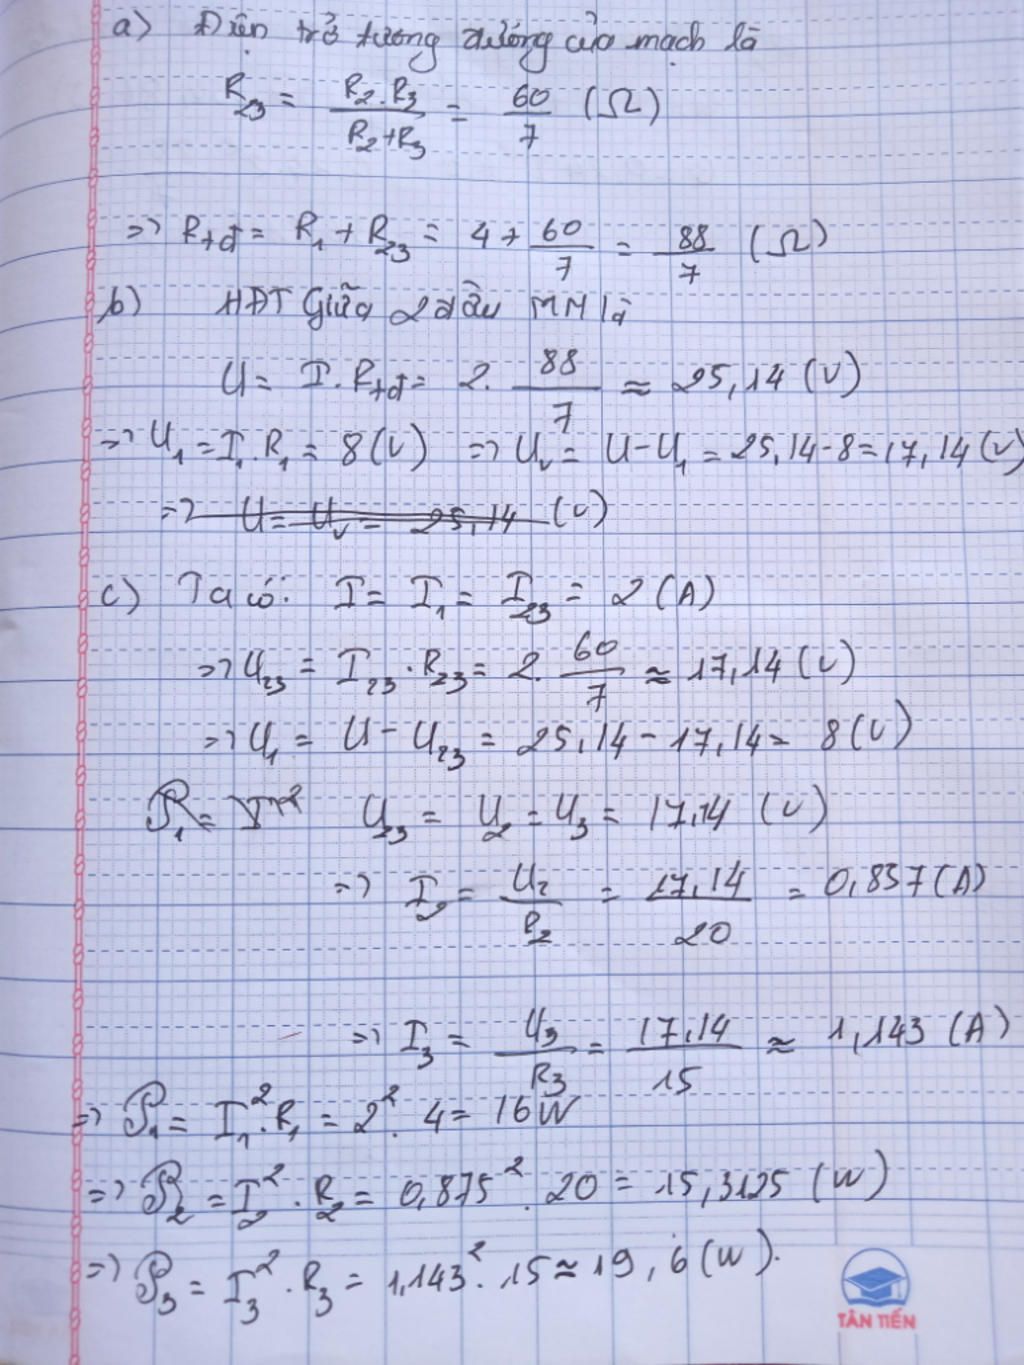 a) Điện trở tương đương của mạch là
R₂₃ = (R₂.R₃)/(R₂+R₃) = 60/7 (Ω)
=> Rtđ = R₁ + R₂₃ = 4 + 60/7 = 88/7 (Ω)
b) HĐT Giữa 2 đầu MN là
U = I.Rtđ = 2. 88/7 ≈ 25,14 (V)
=> U₁ = I₁.R₁ = 8 (V) => Uv = U-U₁ = 25,14-8 = 17,14 (V)
=> U = Uv = 25,14 (V)
c) Ta có: I = I₁ = I₂₃ = 2 (A)
=> U₂₃ = I₂₃.R₂₃ = 2. 60/7 ≈ 17,14 (V)
=> U₁ = U - U₂₃ = 25,14 - 17,14 = 8 (V)
P₁ = I² U₂₃ = U₂ = U₃ = 17,14 (V)
=> I₂ = U₂/R₂ = 17,14/20 = 0,857 (A)
=> I₃ = U₃/R₃ = 17,14/15 ≈ 1,143 (A)
=> P₁ = I₁².R₁ = 2².4 = 16W
=> P₂ = I₂².R₂ = 0,875².20 = 15,3125 (W)
=> P₃ = I₃².R₃ = 1,143².15 ≈ 19,6 (W).
TÂN TIẾN